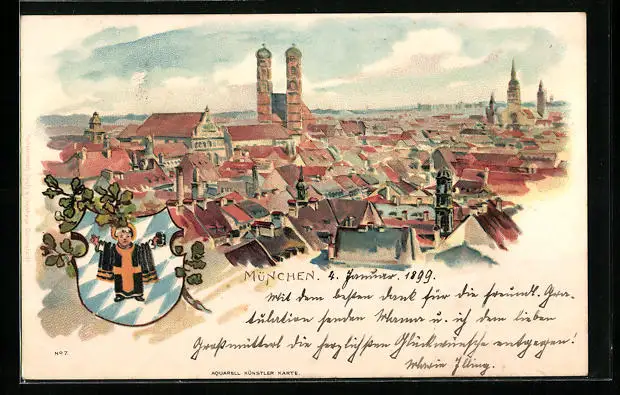 MÜNCHEN. 4. Januar. 1899.
Mit dem besten Dank für die freundl. Gra-
tulation senden Mama u. ich dem lieben
Großmutterl die herzlichsten Glückwünsche entgegen!
Marie Illing.
No 7.
AQUARELL KÜNSTLER KARTE.